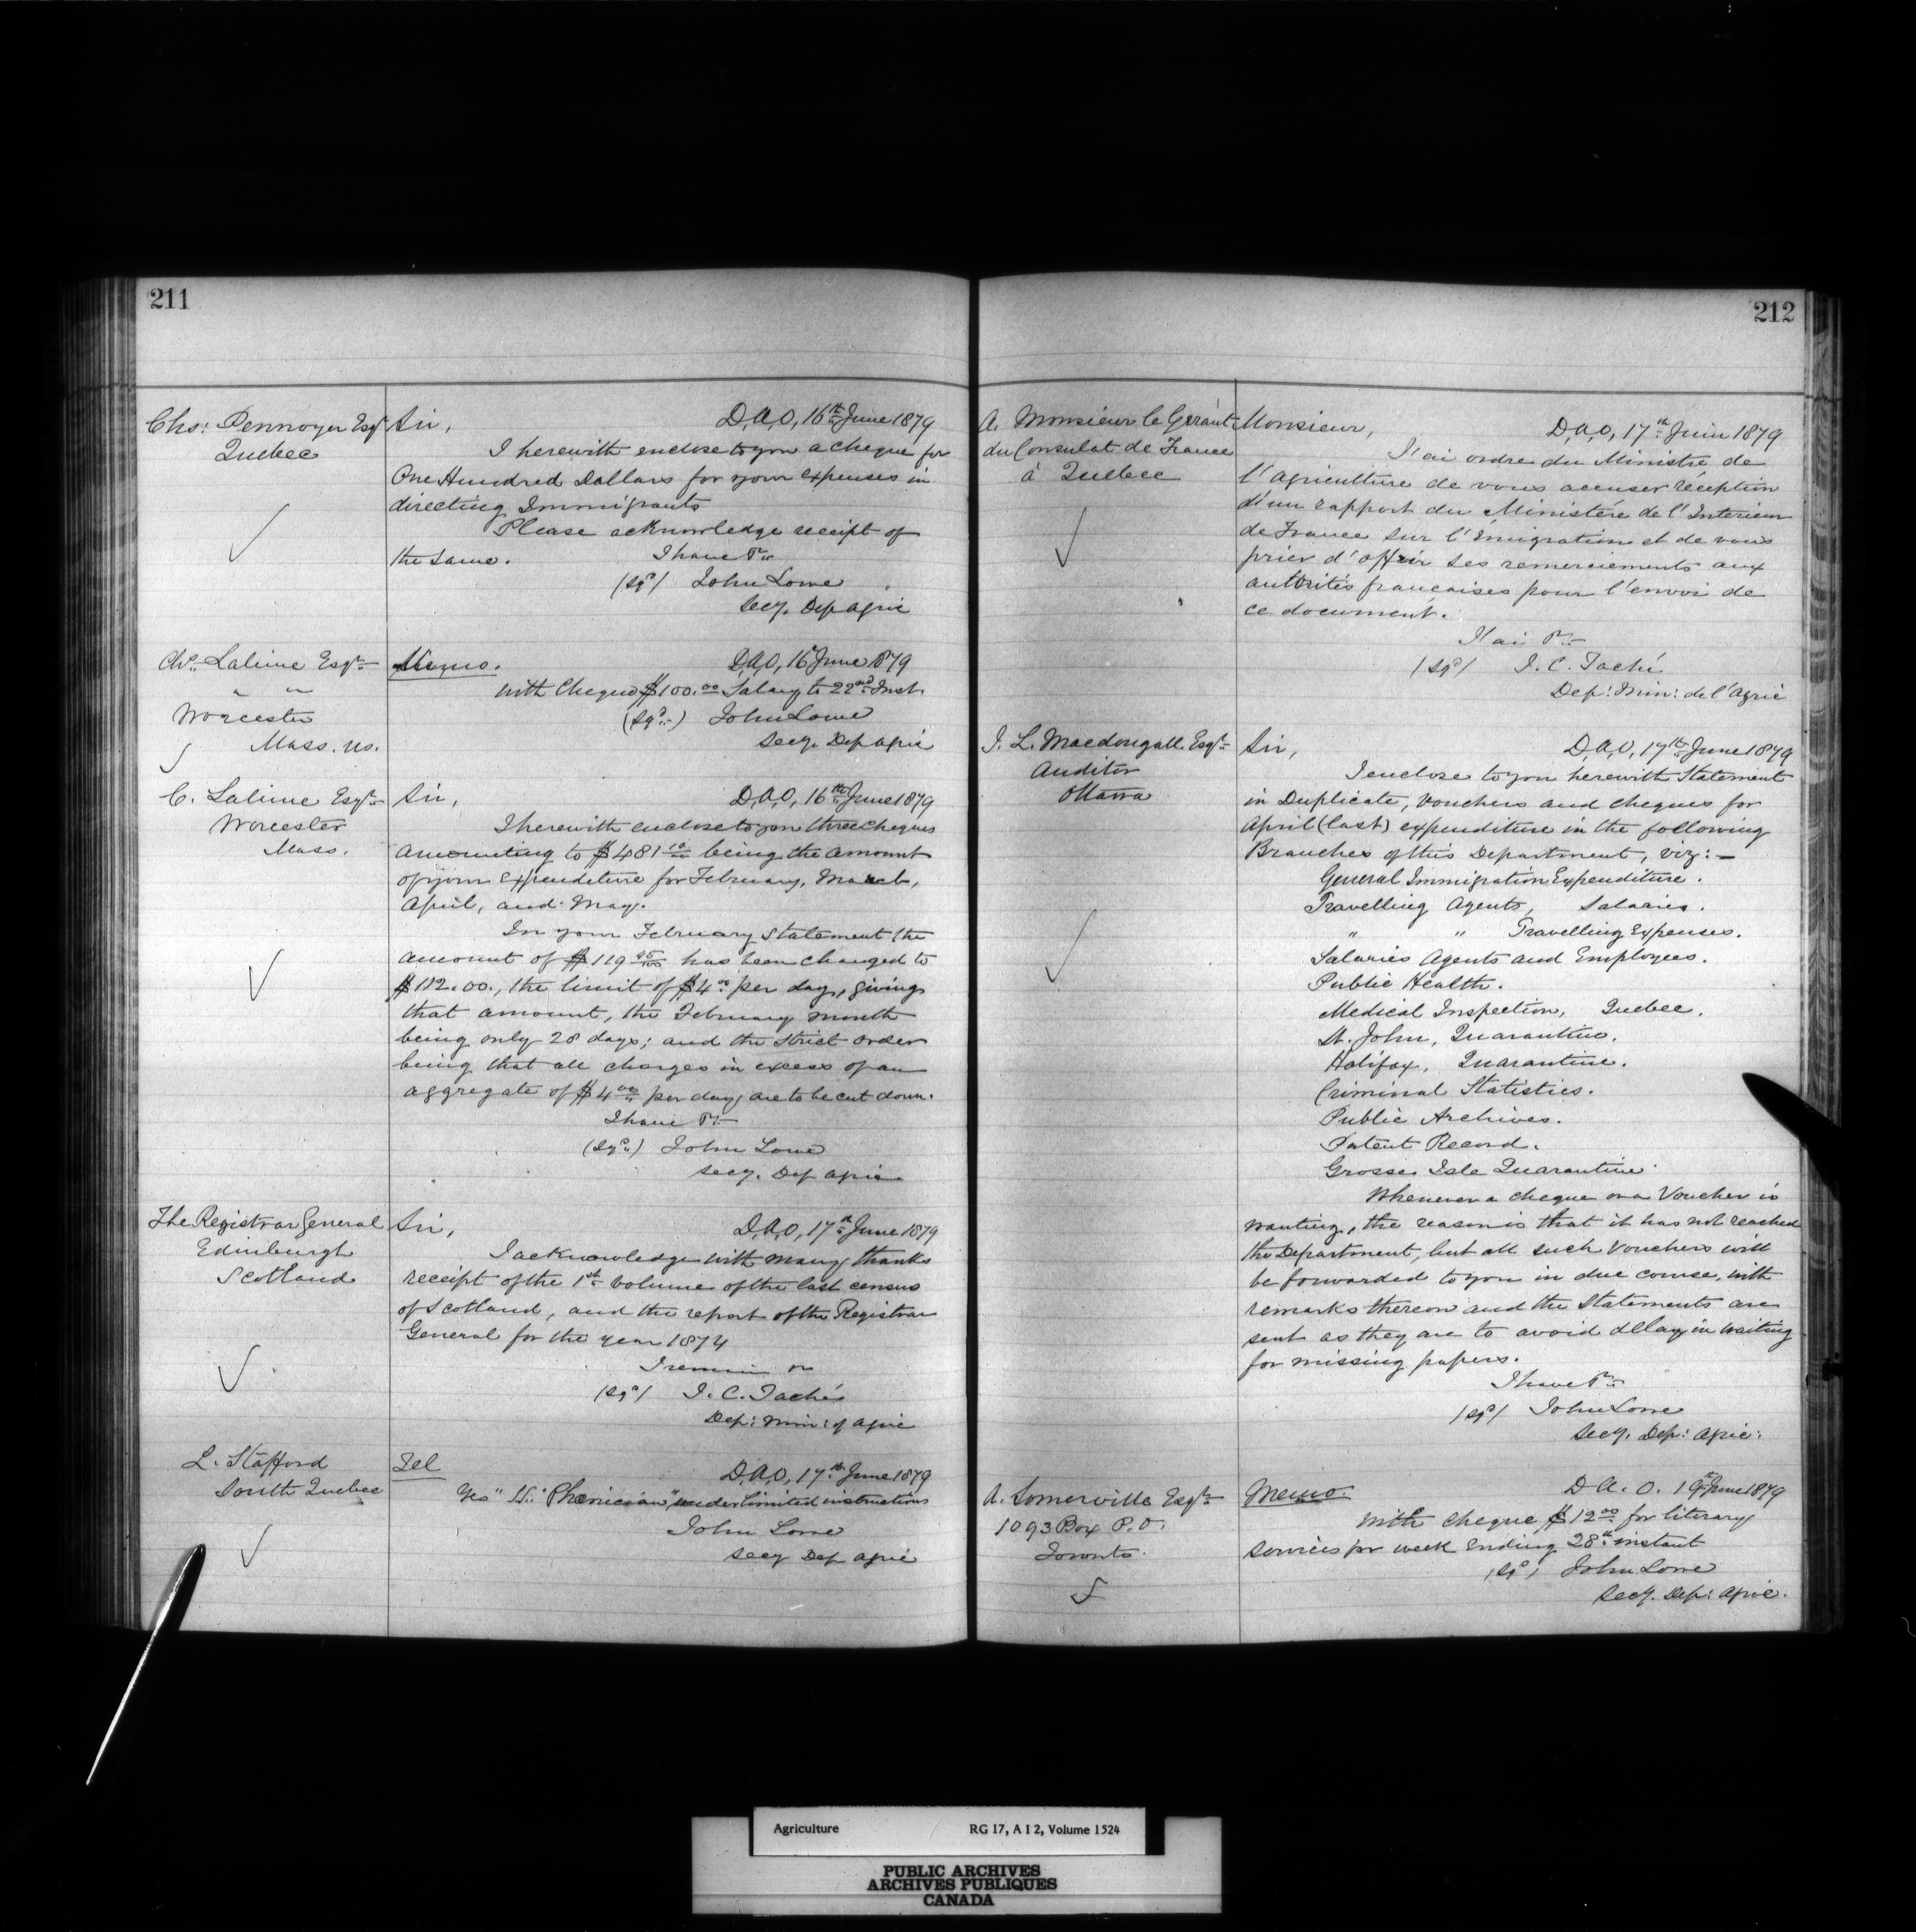 211
Chs: Pennoyer Esqr
Quebec
Sir,
D,A,O, 16th June 1879
I herewith enclose to you a cheque for
One Hundred Dollars for your expenses in
directing Immigrants
Please acknowledge receipt of
the same.
I have &c
(sgd) John Lowe
Secy. Dep Agric
Chs. Lalime Esqr
" "
Worcester
Mass. Us.
Memo.
D,A,O, 16 June 1879
with Cheque $100.00 Salary to 22nd Inst.
(sgd) John Lowe
Secy. Dep Agric
C. Lalime Esqr
Worcester
Mass.
Sir,
D,A,O, 16th June 1879
I herewith enclose to you three cheques
amounting to $481 10/00 being the amount
of your expenditure for February, March,
April, and May.
In your February statement the
amount of $119 45/100 has been changed to
$112.00., the limit of $4.00 per day, giving
that amount, the February month
being only 28 days; and the strict order
being that all charges in excess of an
aggregate of $4.00 per day are to be cut down.
I have &c
(sgd) John Lowe
Secy. Dep Agric
The Registrar General
Edinburgh
Scotland
Sir,
D,A,O, 17th June 1879
I acknowledge with many thanks
receipt of the 1st volume of the last census
of Scotland, and the report of the Registrar
General for the year 1874
I remain
(sgd) J. C. Taché
Dep: Min: of Agric
L. Stafford
South Quebec
Tel
D,A,O, 17th June 1879
Yes" SS. "Phenician" under limited instructions
John Lowe
Secy Dep Agric
212
A. Monsieur le Gérant
du Consulat de France
à Quebec
Monsieur,
D,A,O, 17th Juin 1879
J'ai ordre du Ministre de
l'Agriculture de vous accuser réception
d'un rapport du Ministère de l'Interieur
de France sur l'Émigration et de vous
prier d'offrir ses remerciements aux
autorités françaises pour l'envoi de
ce document.
J'ai &c
(sgd) J. C. Taché
Dep: Min: de l'Agric
J. L. Macdougall Esqr
Auditor
Ottawa
Sir,
D,A,O, 17th June 1879
I enclose to you herewith Statement
in Duplicate, Vouchers and cheques for
April (last) expenditure in the following
Branches of this Department, viz:—
General Immigration Expenditure.
Travelling Agents, Salaries.
" " Travelling Expenses.
Salaries Agents and Employees.
Public Health.
Medical Inspection, Quebec.
St. John, Quarantine.
Halifax, Quarantine.
Criminal Statistics.
Public Archives.
Patent Record.
Grosse Isle Quarantine.
Whenever a cheque or a Voucher is
wanting, the reason is that it has not reached
the Department, but all such Vouchers will
be forwarded to you in due course, with
remarks thereon and the Statements are
sent as they are to avoid delay in waiting
for missing papers.
I have &c
(sgd) John Lowe
Secy. Dep: Agric:
A. Somerville Esqr
1093 Box P.O.
Toronto.
Memo.
D. A. O. 19th June 1879
With cheque $12.00 for literary
services for week ending 28th instant
(sgd) John Lowe
Secy. Dep: Agric.
Agriculture RG 17, A I 2, Volume 1524
PUBLIC ARCHIVES
ARCHIVES PUBLIQUES
CANADA